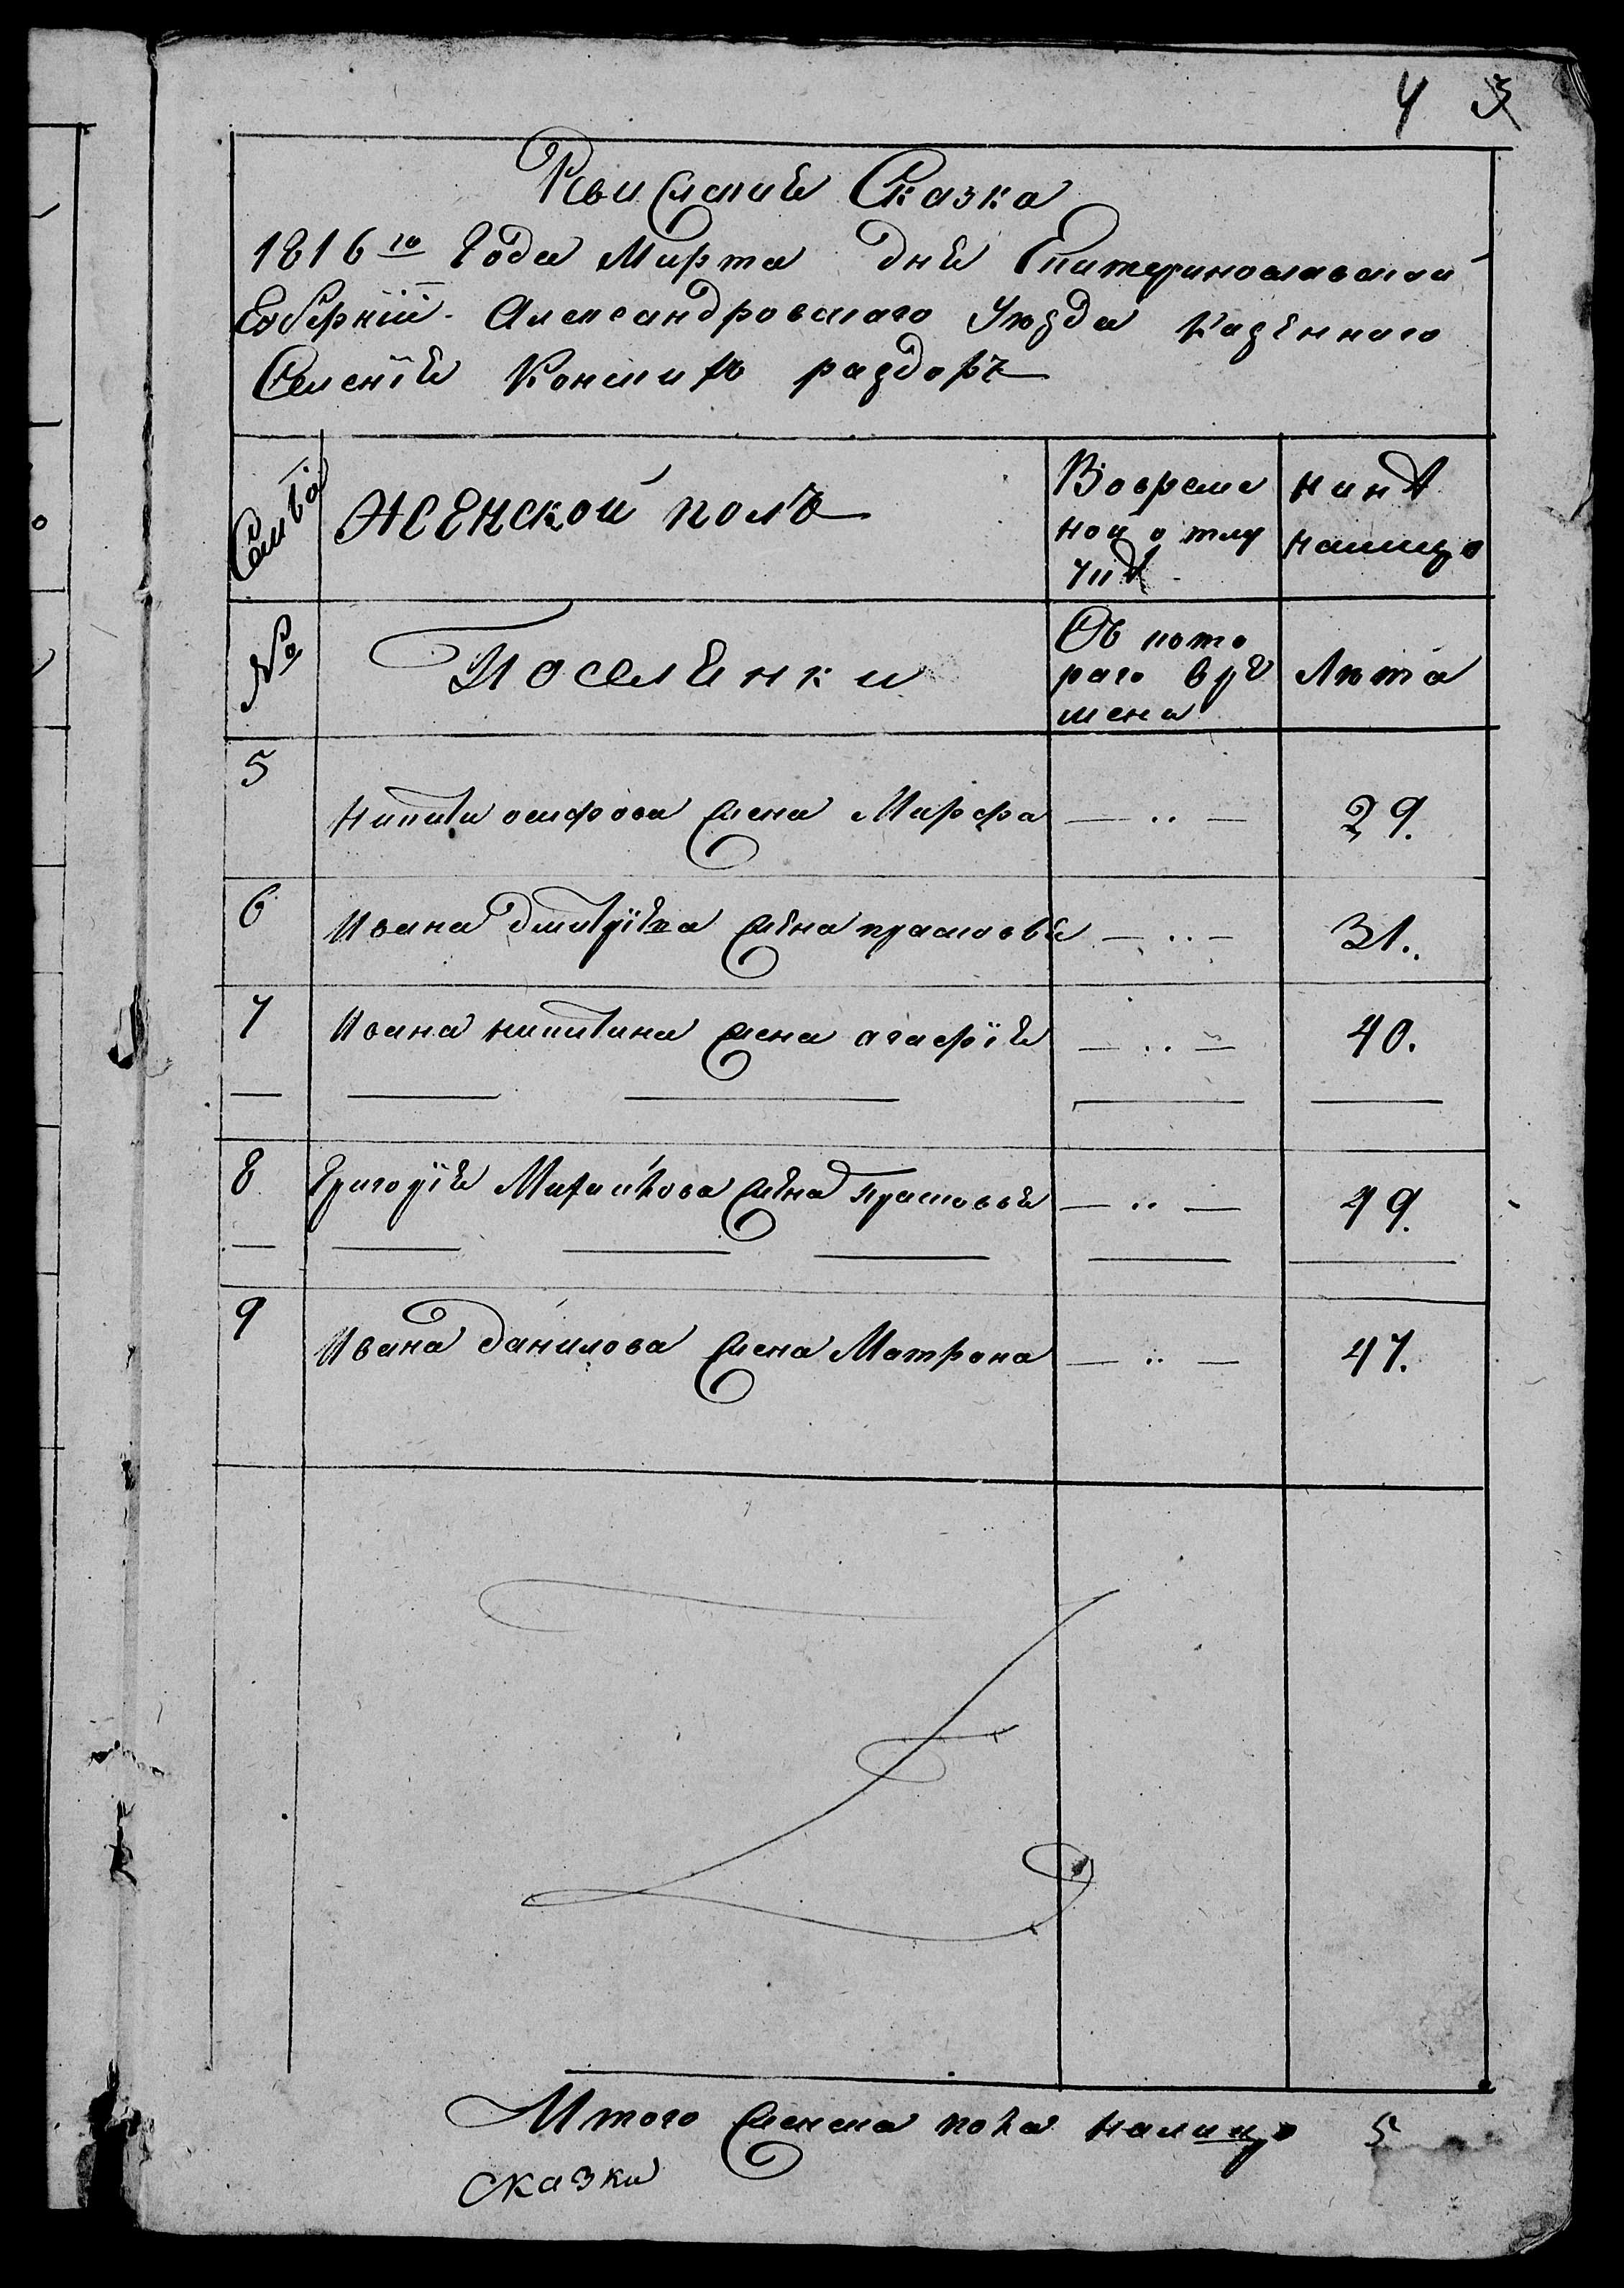 4 5
Ревиская Сказка
1816го Года Марта дня Екатеринославской
Губернiи Александровскаго Уезда казенного
Селенiя Конских раздоръ
Семья
женской полъ
Во време
ной отлу
чке
ныне
налицо
№
Поселенки
Съ кото
раго вре
мени
Лета
5
Никиты осифова жена Марфа — .. — 29.
6
Ивана дмитрiева жена прасковья — .. — 31..
7
Ивана никитина жена агафiя — .. — 40.
8
Григорiя Михайлова жена Прасковья — .. — 49.
9
Ивана данилова жена Матрона — .. — 47.
Итого женска пола налицо 5
сказки